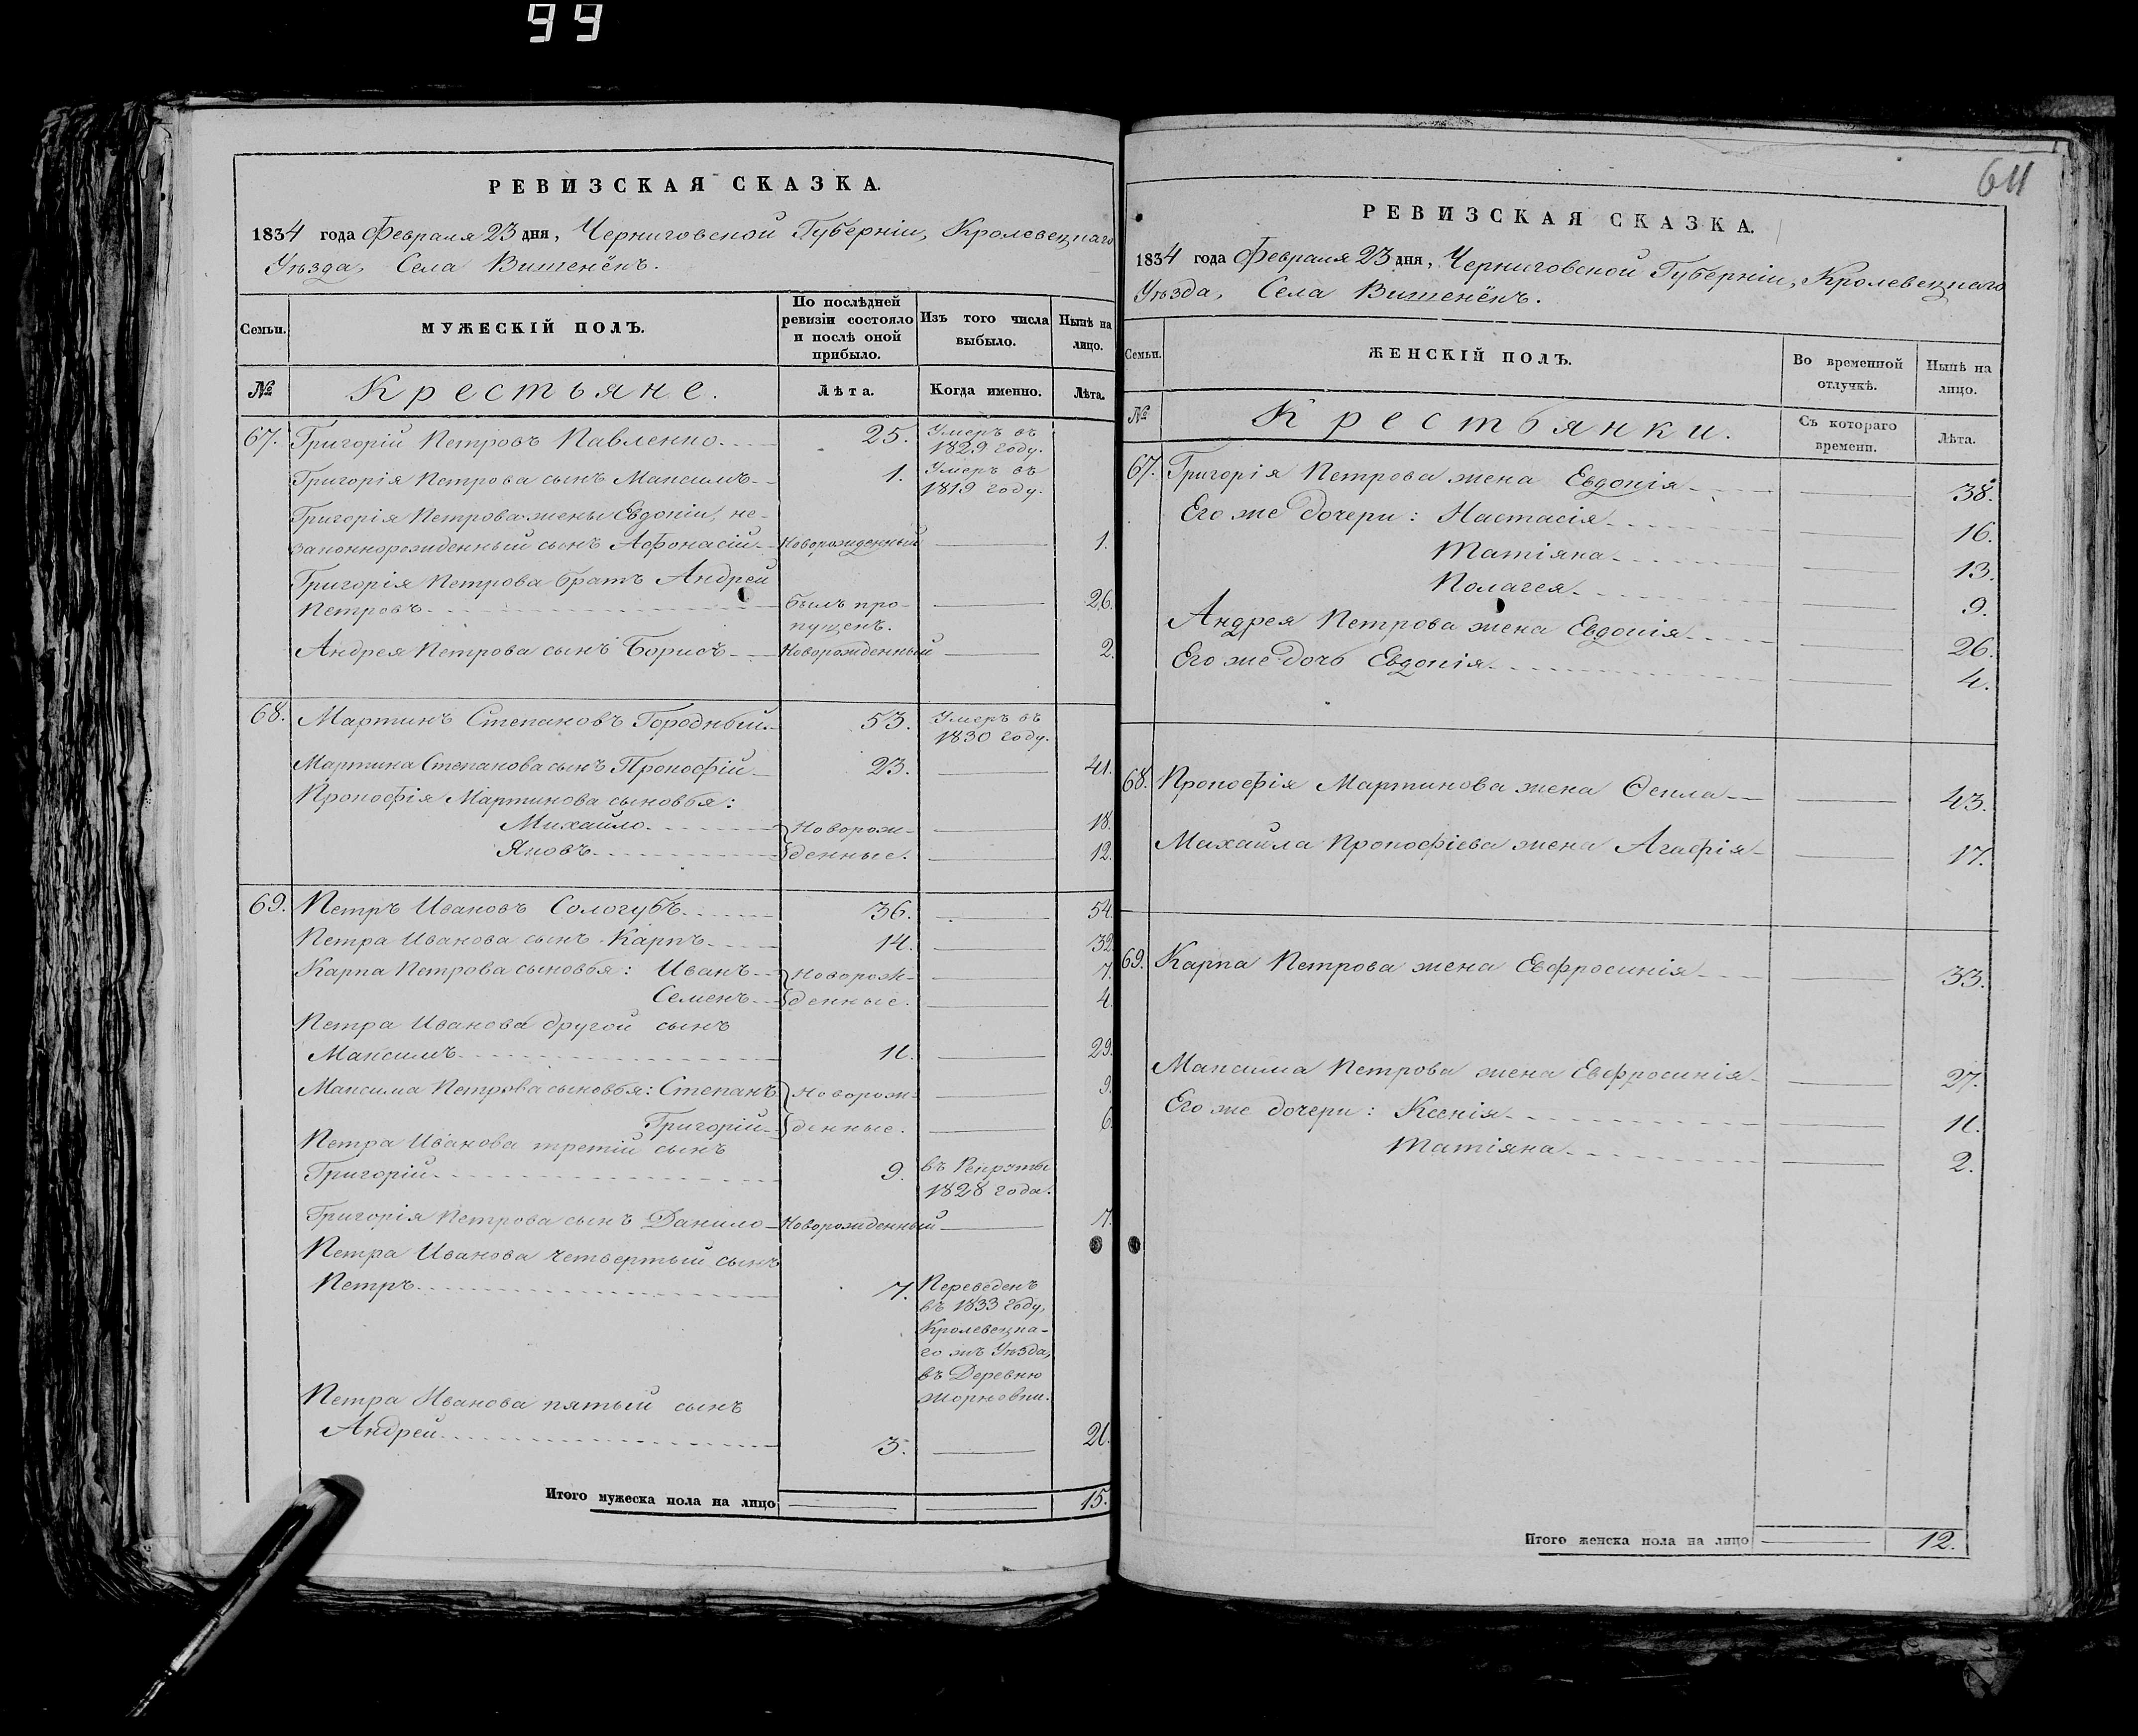 99
РЕВИЗСКАЯ СКАЗКА.
1834 года Февраля 23 дня, Черниговской Губерніи, Кролевецкаго
Уѣзда, Села Вишенёкъ.
Семьи.
МУЖЕСКІЙ ПОЛЪ.
По послѣдней
ревизіи состояло
и послѣ оной
прибыло.
Изъ того числа
выбыло.
Нынѣ на
лицо.
№
Крестьяне.
Лѣта.
Когда именно.
Лѣта.
67. Григорій Петровъ Павленко 25. Умеръ въ
1829 году.
Григорія Петрова сынъ Максимъ 1. Умеръ въ
1819 году.
Григорія Петрова жены Евдокіи, не-
законнорожденный сынъ Афонасій Новорожденный 1.
Григорія Петрова братъ Андрей
Петровъ былъ про- 26.
пущенъ.
Андрея Петрова сынъ Борисъ Новорожденный 2.
68. Мартинъ Степановъ Городный 53. Умеръ въ
1830 году.
Мартина Степанова сынъ Прокофій 23. 41.
Прокофія Мартинова сыновья:
Михайло Новорож- 18.
Яковъ денные. 12.
69. Петръ Ивановъ Сологубъ 36. 54.
Петра Иванова сынъ Карпъ 14. 32.
Карпа Петрова сыновья: Иванъ Новорож- 7.
Семенъ денные. 4.
Петра Иванова другой сынъ
Максимъ 11. 29.
Максима Петрова сыновья: Степанъ Новорож- 9.
Григорій денные. 6.
Петра Иванова третій сынъ
Григорій 9. въ Рекруты
1828 года.
Григорія Петрова сынъ Данило Новорожденный 7.
Петра Иванова четвертый сынъ
Петръ 7. Переведенъ
въ 1833 году,
Кролевецка-
го жъ Уѣзда,
въ Деревню
Жорновки.
Петра Иванова пятый сынъ
Андрей 3. 21.
Итого мужеска пола на лицо 15.
611
РЕВИЗСКАЯ СКАЗКА.
1834 года Февраля 23 дня, Черниговской Губерніи, Кролевецкаго
Уѣзда, Села Вишенёкъ.
Семьи.
ЖЕНСКІЙ ПОЛЪ.
Во временной
отлучкѣ.
Нынѣ на
лицо.
№
Крестьянки.
Съ котораго
времени.
Лѣта.
67. Григорія Петрова жена Евдокія 38.
Его же дочери: Настасія 16.
Татіяна 13.
Полагея 9.
Андрея Петрова жена Евдокія 26.
Его же дочь Евдокія 4.
68. Прокофія Мартинова жена Ѳекла 43.
Михайла Прокофіева жена Агафія 17.
69. Карпа Петрова жена Евфросинія 33.
Максима Петрова жена Евфросинія 27.
Его же дочери: Ксенія 11.
Татіяна 2.
Итого женска пола на лицо 12.